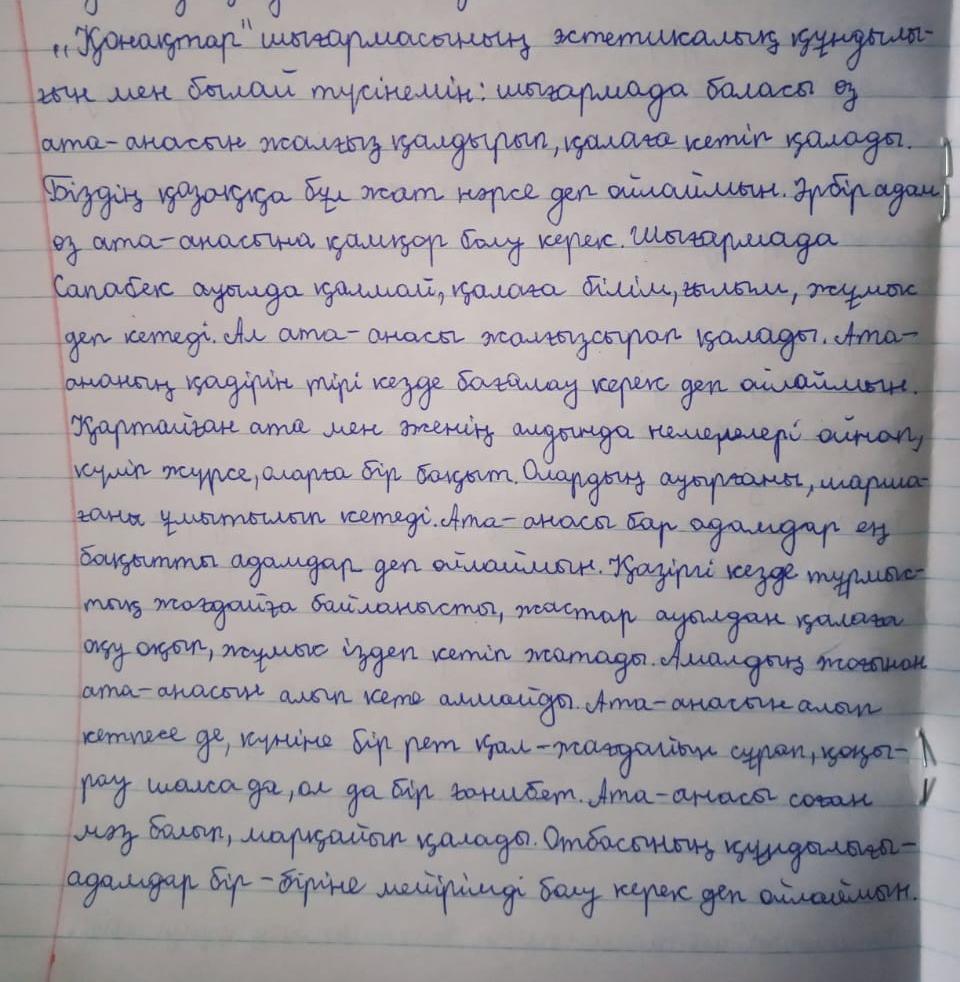 „Қонақтар" шығармасының эстетикалық құндылы-
ғын мен былай түсінемін: шығармада баласы өз
ата-анасын жалғыз қалдырып, қалаға кетіп қалады.
Біздің қазаққа бұл жат нәрсе деп ойлаймын. Әрбір адам
өз ата-анасына қамқор болу керек. Шығармада
Сапабек ауылда қалмай, қалаға білім, ғылым, жұмыс
деп кетеді. Ал ата-анасы жалғызсырап қалады. Ата-
ананың қадірін тірі кезде бағалау керек деп ойлаймын.
Қартайған ата мен әженің алдында немерелері ойнап,
күліп жүрсе, оларға бір бақыт. Олардың ауырғаны, шарша-
ғаны ұмытылып кетеді. Ата-анасы бар адамдар ең
бақытты адамдар деп ойлаймын. Қазіргі кезде тұрмыс-
тық жағдайға байланысты, жастар ауылдан қалаға
оқу оқып, жұмыс іздеп кетіп жатады. Амалдың жоғынан
ата-анасын алып кете алмайды. Ата-анасын алып
кетпесе де, күніне бір рет қал-жағдайын сұрап, қоңы-
рау шалса да, ол да бір ғанибет. Ата-анасы соған
мәз болып, марқайып қалады. Отбасының құндылығы-
адамдар бір-біріне мейірімді болу керек деп ойлаймын.